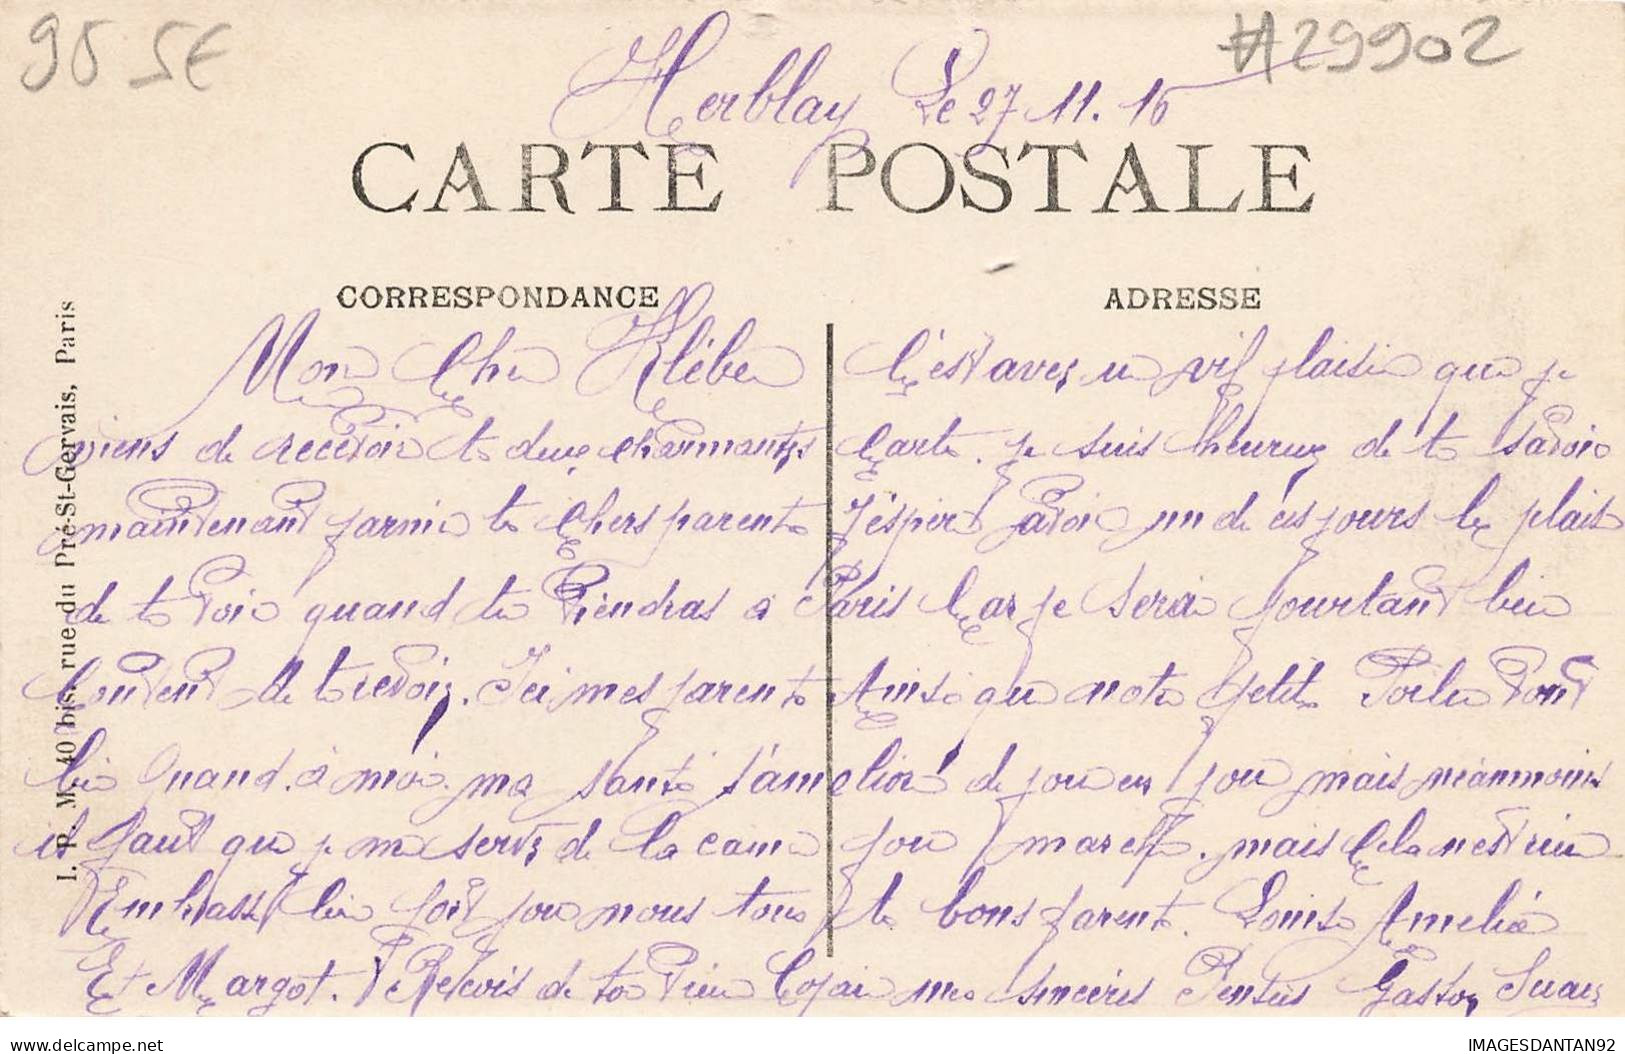 95 5€
#29902
Herblay Le 27 11. 16
CARTE POSTALE
CORRESPONDANCE
ADRESSE
I. P. M. 40 bis, rue du Pré-St-Gervais, Paris
Mon Cher Kléber C'est avec un vif plaisir que je
viens de recevoir ta deux charmantes carte. je suis heureux de te savoir
maintenant parmie tes chers parents J'espère avoir un de ces jours le plaisir
de te voir quand tu viendras à Paris Car je serai pourtant bien
content de te revoir. Ici mes parents Ainsi que notre petit Poilu vont
bien Quand à moi ma santé s'améliore de jour en jour mais néanmoins
il faut que je me serve de la canne pour marcher. mais Cela n'est rien
Embrasse bien fort pour nous tous te bons parents. Louise Amelie
Et Margot. Reçois de ton vieux Copain mes sincères Pensées Gaston
IMAGESDANTAN92